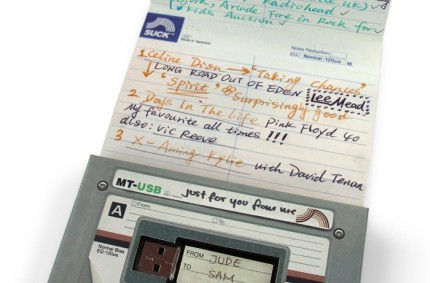 UK)
Radiohead
Björk, Arcade Fire in Rock for
Kids Auction
SUCK™
Noise Reduction
EQ Normal·120us
1 Celine Dion → "Taking Chances"
↳ LONG ROAD OUT OF EDEN
Lee Mead
"Spirit" Surprisingly good
2 Days In The Life Pink Floyd 40
My favourite all times !!!
also: Vic Reeve
3 X-Aming Kylie with David Tenan
MT-USB just for you from me
A
From
To
Normal Bias
EQ·120us
FROM JUDE
TO SAM